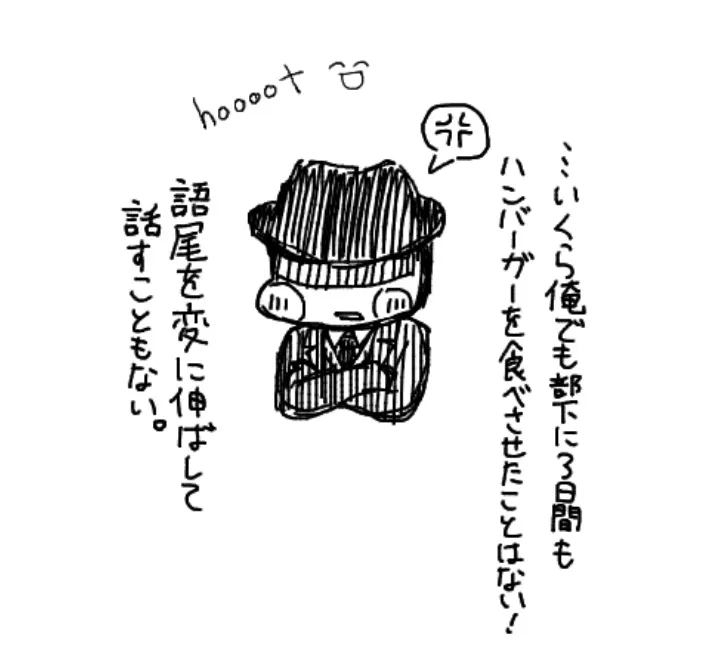 hoooot
…いくら俺でも部下に3日間も
ハンバーガーを食べさせたことはない!
語尾を変に伸ばして
話すこともない。